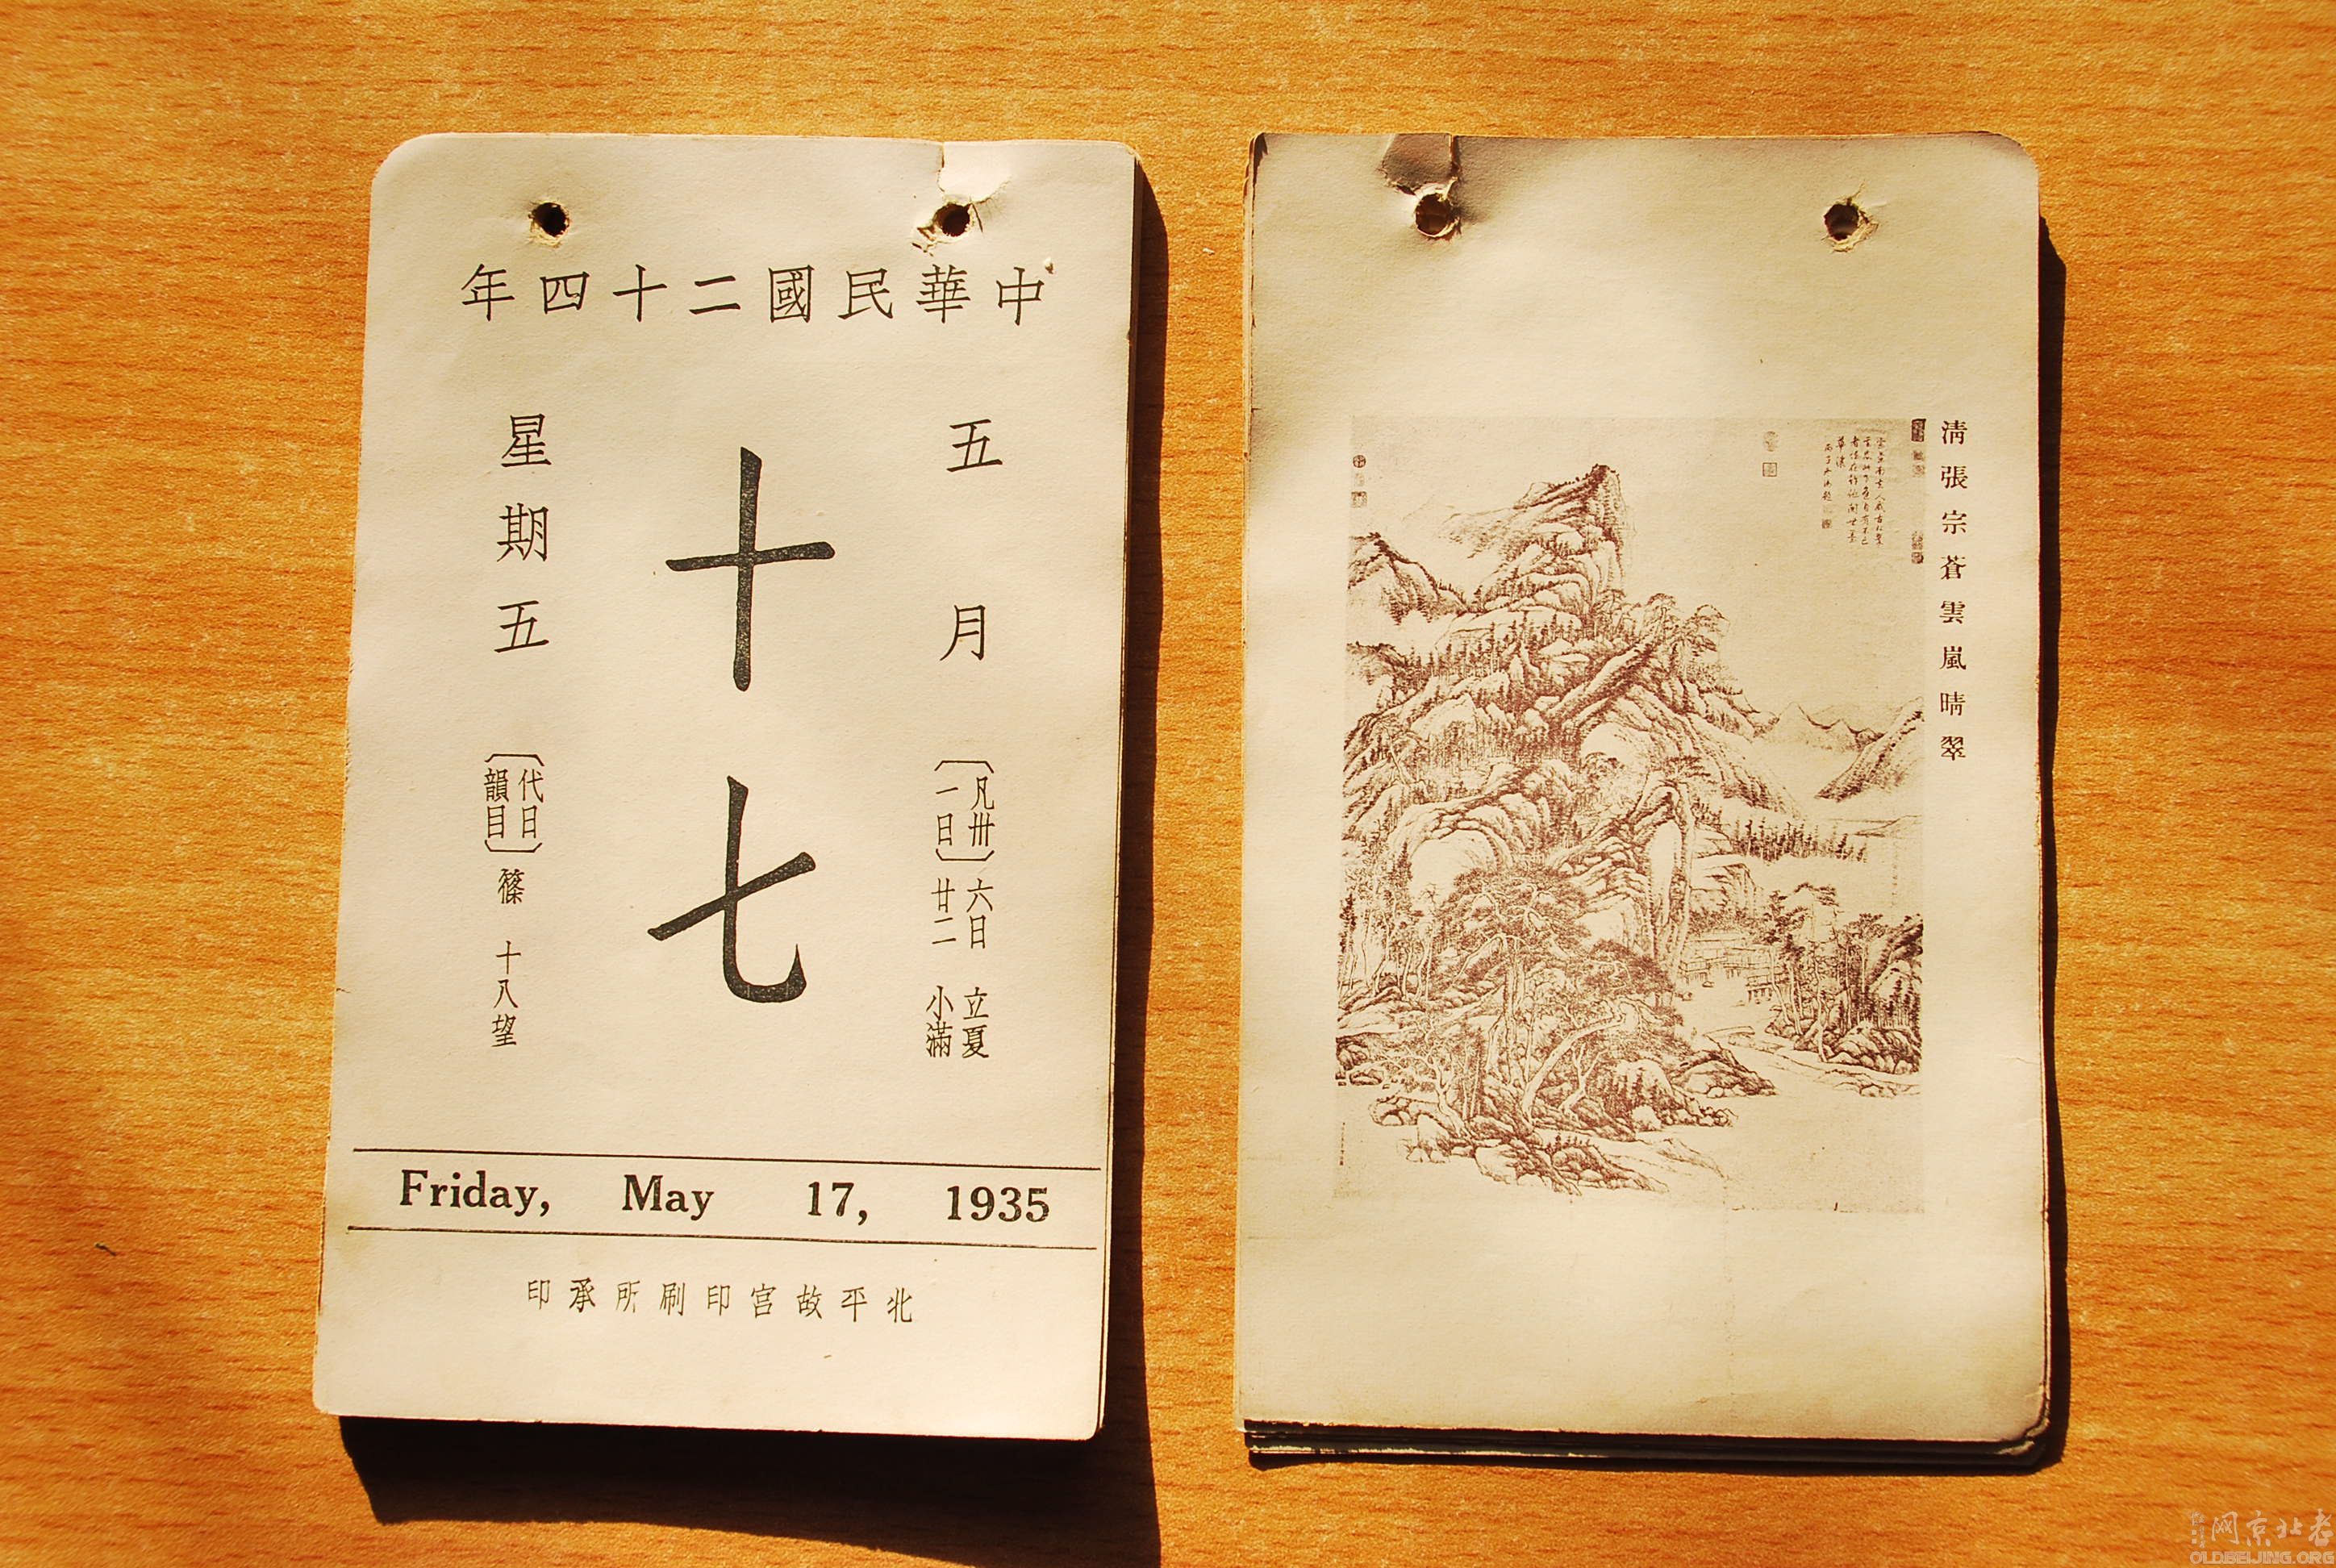 中華民國二十四年
五月
〔凡卅一日〕
六日 立夏
廿二 小滿
十七
星期五
〔代日韻目〕 篠 十八望
Friday, May 17, 1935
北平故宮印刷所承印
清張宗蒼雲嵐晴翠
老北京网
OLDBEIJING.ORG